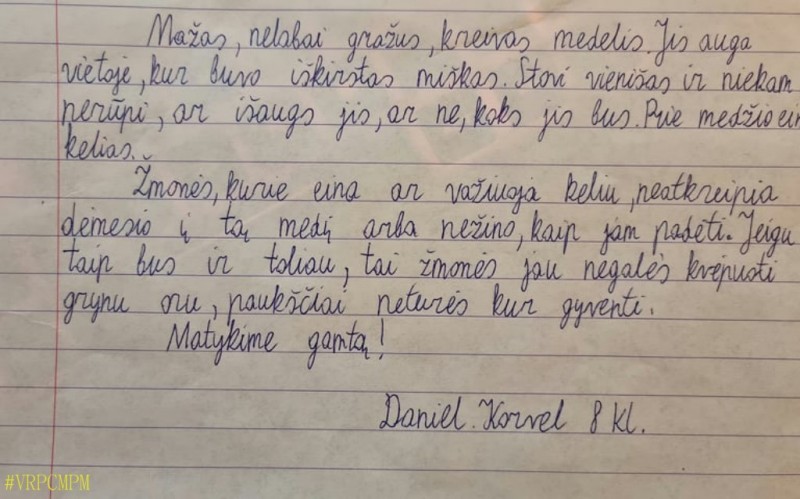 Mažas, nelabai gražus, kreivas medelis. Jis auga
vietoje, kur buvo iškirstas miškas. Stovi vienišas ir niekam
nerūpi, ar išaugs jis, ar ne, koks jis bus. Prie medžio ein
kelias.
Žmonės, kurie eina ar važiuoja keliu, neatkreipia
dėmesio į tą medį arba nežino, kaip jam padėti. Jeigu
taip bus ir toliau, tai žmonės jau negalės kvėpuoti
grynu oru, paukščiai neturės kur gyventi.
Matykime gamtą!
Daniel Korvel 8 kl.
#VRPCMPM